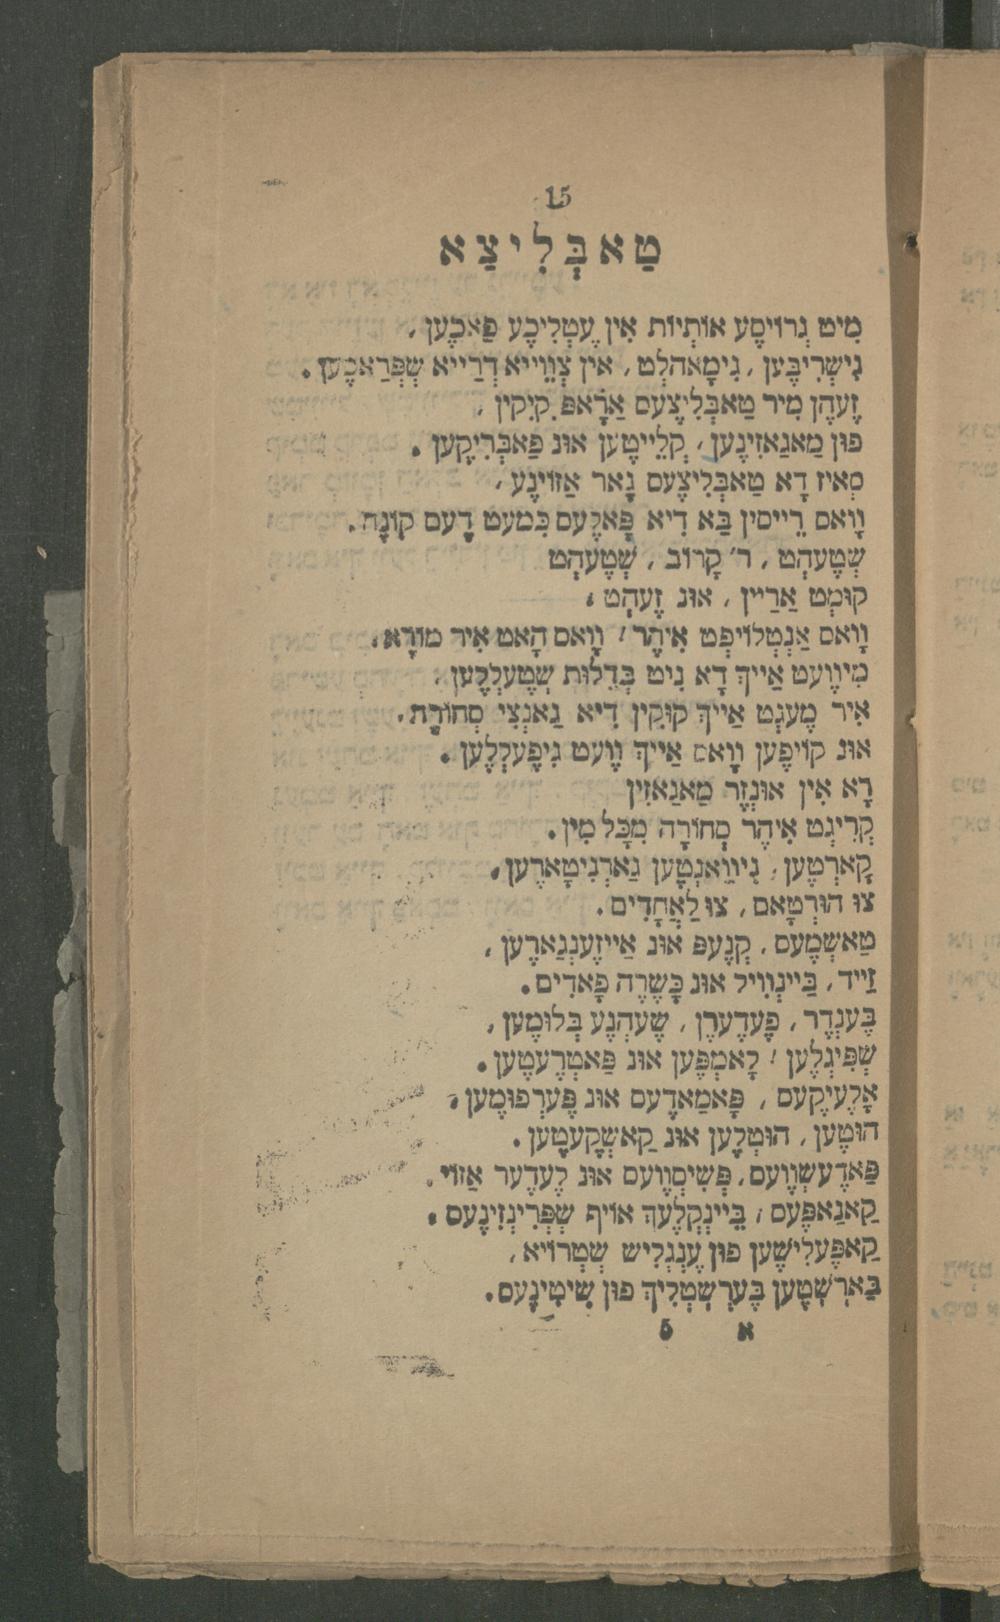 15
טַאבְּלִיצַא
מִיט גְרוֹיסֶע אוֹתִיוֹת אִין עֶטְלִיכֶע פַאכֶען,
גִישְרִיבֶּען, גִימָאהלְט, אִין צְוֵוייא דְרַייא שְפְּרַאכֶען.
זֶעהֶן מִיר טַאבְּלִיצֶעס אַרָאפּ קִיקִין,
פוּן מַאגַאזִינֶען, קְלֵייטֶען אוּנ פַאבְּרִיקֶען.
סְאִיז דָא טַאבְּלִיצֶעס גָאר אַזוֹינֶע,
וָואס רֵייסִין בַּא דִיא פָּאלֶעס כִּמעט דֶעם קוֹנֶה.
שְטֶעהְט, ר' קָרוֹב, שְטֶעהְט
קוּמְט אַרַיין, אוּנ זֶעהְט,
וָואס אַנְטְלוֹיפְט אִיהֶר, וָואס הָאט אִיר מוֹרָא,
מִיוֶועט אַייךְ דָא נִיט בְּדַלוּת שְטֶעלֶען,
אִיר מֶעגְט אַייךְ קוּקִין דִיא גַאנְצִי סְחוֹרָה,
אוּנ קוֹיפֶען וָואס אַייךְ וֶועט גִיפֶעלֶען.
דָא אִין אוּנְזֶר מַאגַאזִין
קְרִיגְט אִיהֶר סְחוֹרָה מִכָּל מִין.
קָארְטֶען, גִיוַואנְטֶען גַארְנִיטָארֶען,
צוּ הוּרְטָאם, צוּ לַאֲחָדִים.
טַאשְמֶעס, קְנֶעפּ אוּנ אַייזֶענְגַארֶען,
זַייד, בַּיינְוִויל אוּנ כָּשֶרֶה פָאדִים.
בֶּענְדֶר, פֶעדֶערֶן, שֶעהְנֶע בְּלוּמֶען,
שְפִּיגְלֶען, לָאמְפֶּען אוּנ פַּאטְרֶעטֶען.
אָלֶעיקֶעס, פָּאמַאדֶעס אוּנ פֶּערְפוּמֶען,
הוּטֶען, הוּטְלֶען אוּנ קַאשְקֶעטֶען.
פַּאדֶעשְוֶועס, פְּשִיסְוֶועס אוּנ לֶעדֶער אַזוֹי,
קַאנַאפֶּעס, בֵּיינְקְלֶעךְ אוֹיף שְפְּרִינְזִינֶעס.
קַאפֶּעלִישֶען פוּן עֶנְגְלִיש שְטְרוֹיא,
בַּארְשְטֶען בֶּערְשְטְלִיךְ פוּן שְיטִינֶעס.
א 5